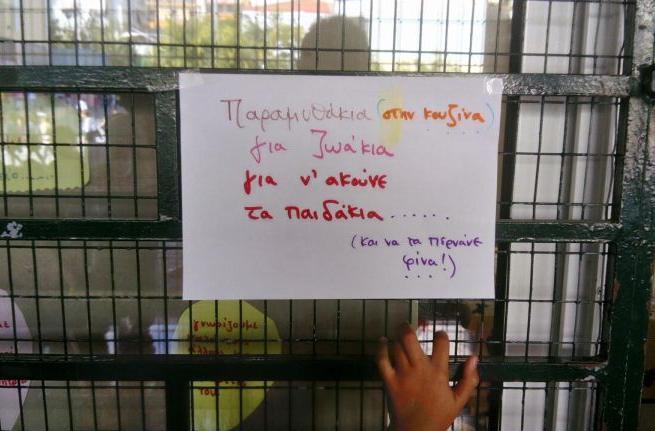 Παραμυθάκια (στην κουζίνα)
για ζωάκια
για ν' ακούνε
τα παιδάκια......
(και να τα περνάνε
φίνα!)
γνωρίζουμε
του